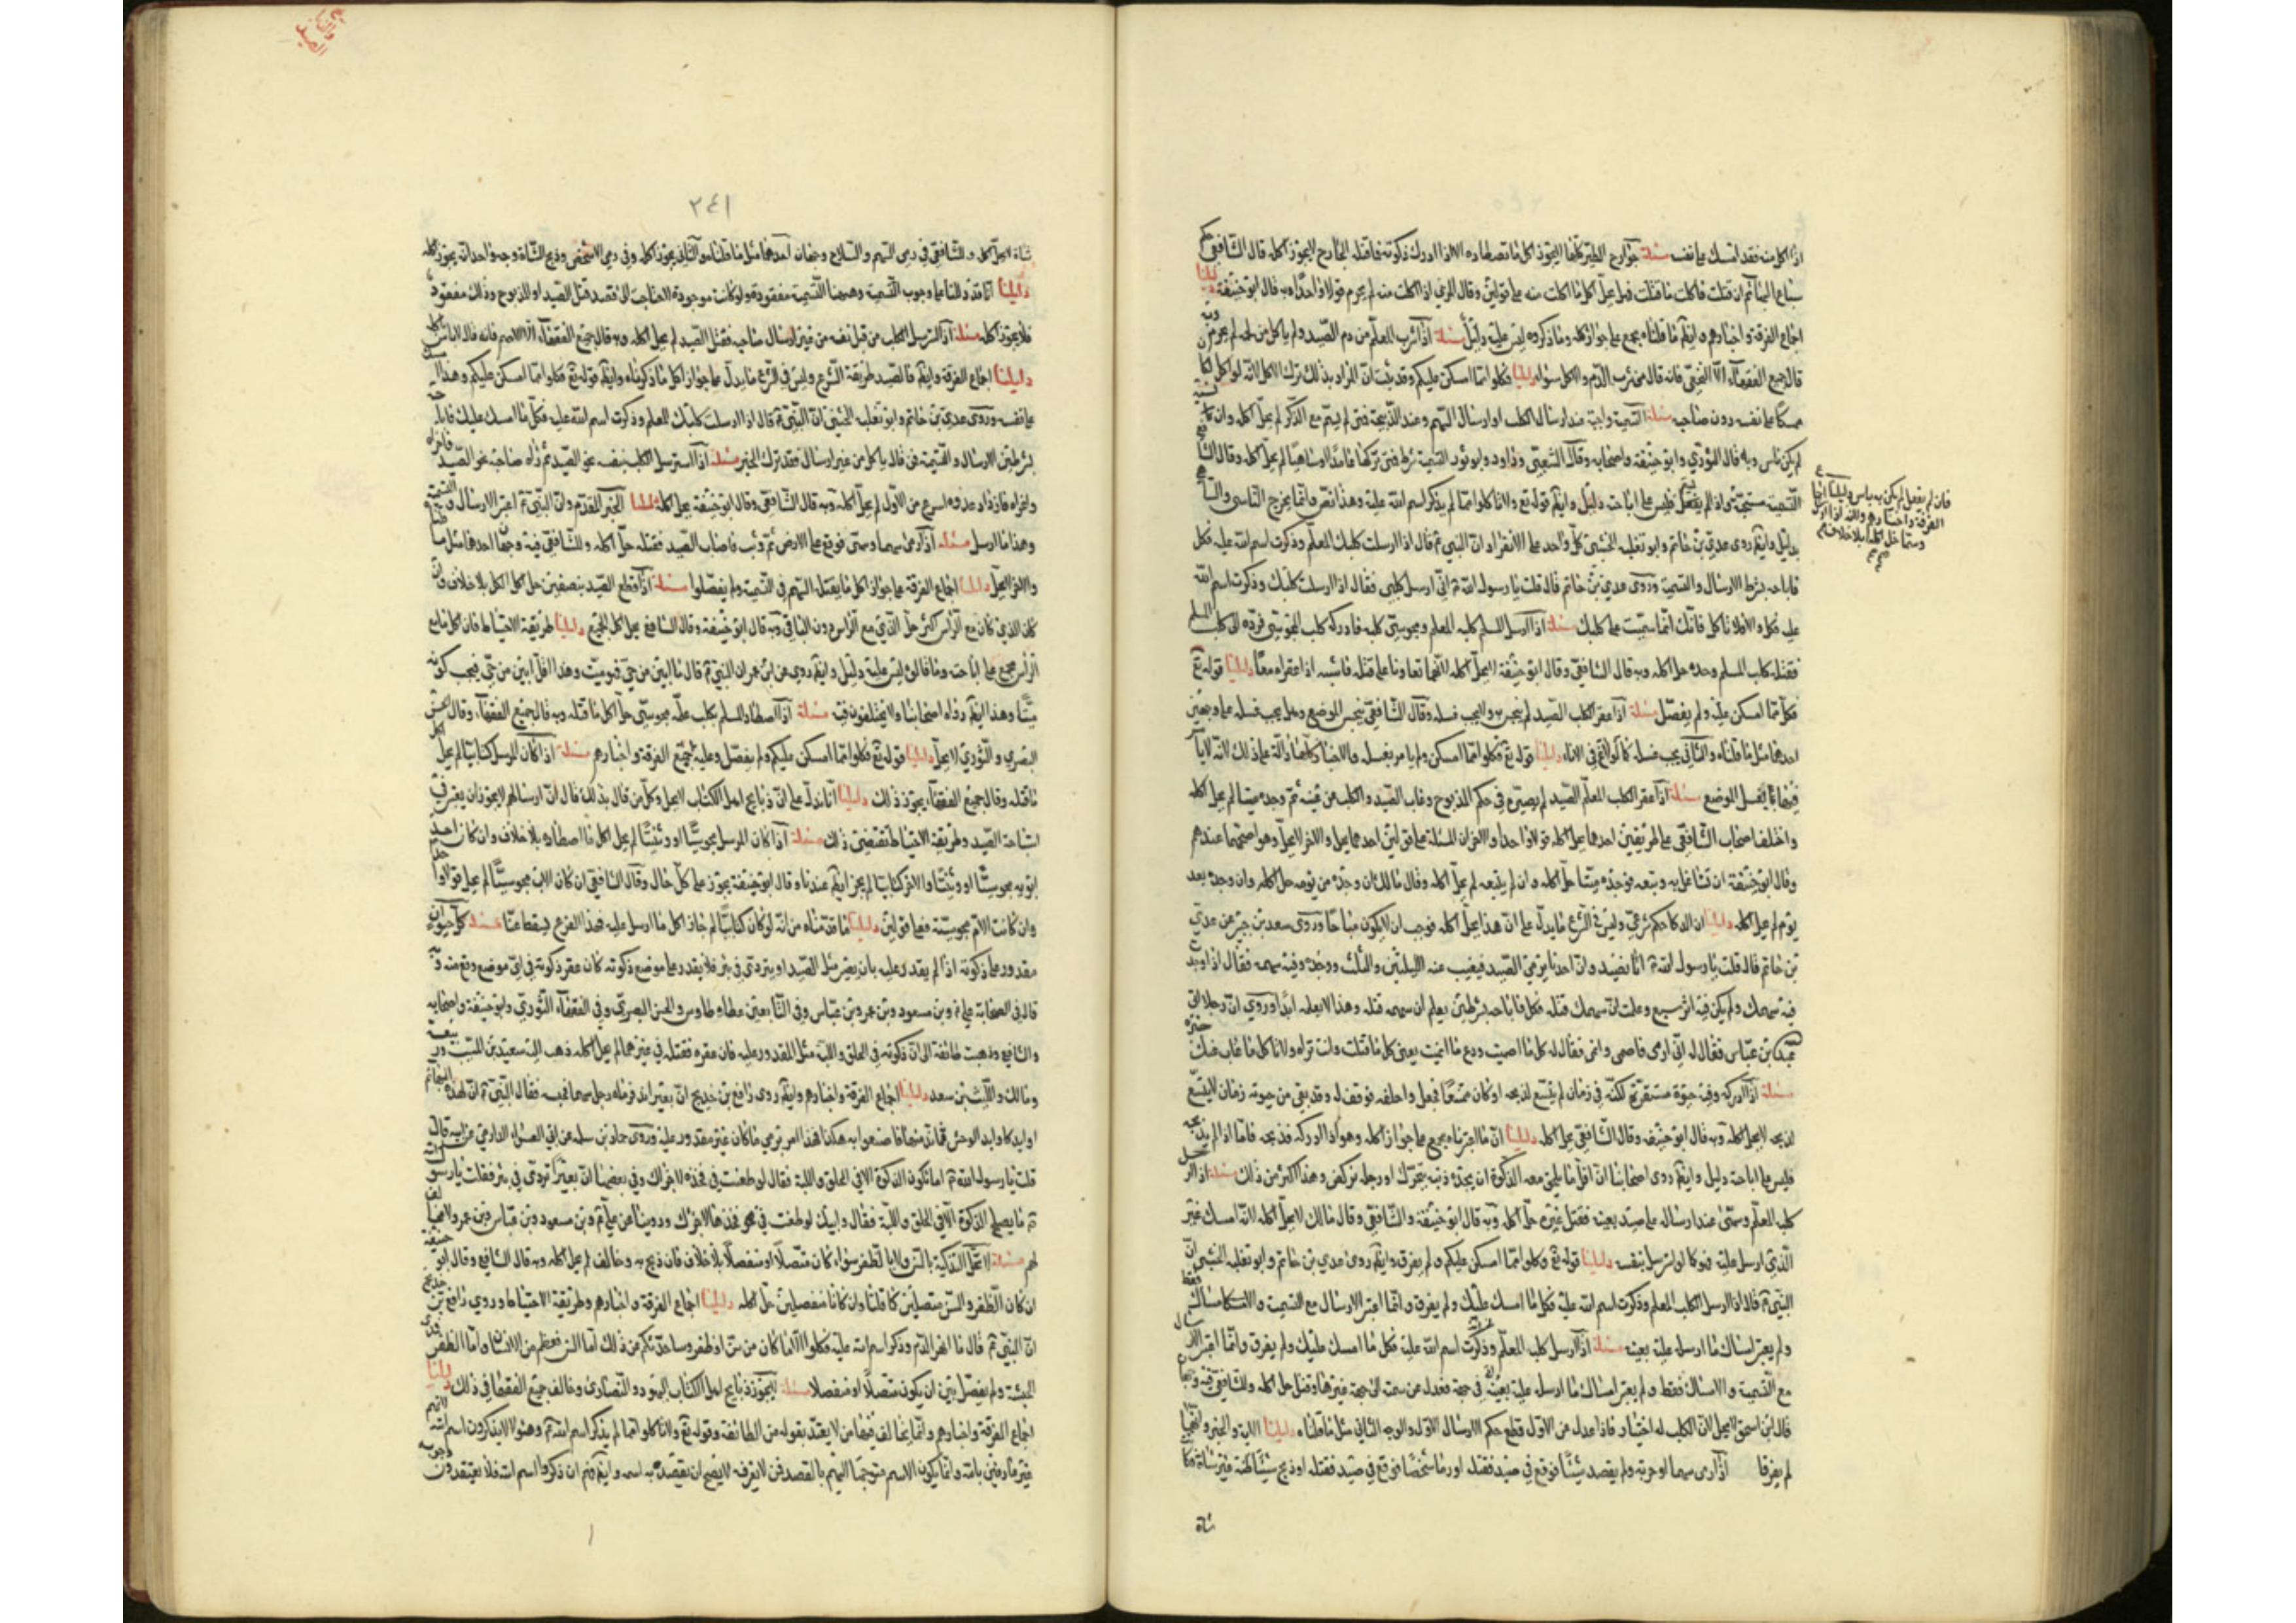 اذا اكل منه فقد امسك على نفسه مسئلة جوارح الطير كلها لا يجوز اكل ما تصطاده الا اذا ادرك ذكوته فما قتله الجارح لا يجوز اكله قال الشافعي حكم
سباع البهائم ان قتلت فاكلت ما قتلت فهل يحل اكل ما اكلت منه على قولين وقال المزني اذا اكلت منه لم يحرم قولا واحدا وبه قال ابو حنيفة دليلنا
اجماع الفرقة واخبارهم وايضا ما قلناه مجمع على جواز اكله وما ذكروه ليس عليه دليل مسئلة اذا شرب المعلم من دم الصيد ولم ياكل من لحمه لم يحرم وبه
قال جميع الفقهاء الا النخعي فانه قال من شرب الدم والاكل سواء دليلنا فكلوا مما امسكن عليكم وقد ثبت ان المراد بذلك ترك الاكل لانه لو اكل لكان
ممسكا على نفسه دون صاحبه مسئلة التسمية واجبة عند ارسال الكلب او ارسال السهم وعند الذبيحة فمتى لم يسم مع الذكر لم يحل اكله وان كان نسيه
لم يكن باس وبه قال الثوري وابو حنيفة واصحابه وقال الشعبي وداود وابو ثور التسمية شرط فمتى تركها عامدا او ساهيا لم يحل اكله وقال الشافعي
التسمية مستحبة فان لم يفعل لم يكن به باس دليلنا اجماع الفرقة واخبارهم وانه اذا ارسل وسمى حل اكله بلا خلاف
واذا لم يسم فليس على اباحته دليل وايضا قوله تع ولا تاكلوا مما لم يذكر اسم الله عليه وهذا نص وانما يخرج الناسي والساهي
بدليل وايضا روى عدي بن حاتم وابو ثعلبة الخشني كل واحد على الانفراد ان النبي م قال اذا ارسلت كلبك المعلم وذكرت اسم الله عليه فكل
فاباحه بشرط الارسال والتسمية وروى عدي بن حاتم قال قلت يا رسول الله م اني ارسل كلبي فقال اذا ارسلت كلبك وذكرت اسم الله
عليه فكل والا فلا تاكل فانك انما سميت على كلبك مسئلة اذا ارسل المسلم كلبه المعلم ومجوسي كلبه فادركه كلب المجوسي فرده الى كلب المسلم
فقتله كلب المسلم وحده حل اكله وبه قال الشافعي وقال ابو حنيفة لا يحل اكله لانهما تعاونا على قتله فاشبه اذا عقراه معا دليلنا قوله تع
فكلوا مما امسكن عليكم ولم يفصل مسئلة اذا عقر الكلب الصيد لم ينجس به ولا يجب غسله وقال الشافعي ينجس الموضع وهل يجب غسله على وجهين
احدهما مثل ما قلناه والثاني يجب غسله كما لو ولغ في الاناء دليلنا قوله تع فكلوا مما امسكن ولم يامر بغسله والاخبار كلها دالة على ذلك لانه لا يامر
فيها بغسل الموضع مسئلة اذا عقر الكلب المعلم الصيد لم يصيره في حكم المذبوح وغاب الصيد والكلب عن عينه ثم وجده ميتا لم يحل اكله
واختلف اصحاب الشافعي على طريقين احدهما يحل اكله قولا واحدا والاخر ان المسئلة على قولين احدهما يحل والاخر لا يحل وهو اصحهما عندهم
وقال ابو حنيفة ان تشاغل به وتبعه فوجده ميتا حل اكله وان لم يتبعه لم يحل اكله وقال مالك ان وجده من يومه حل اكله وان وجده بعد
يوم لم يحل اكله دليلنا ان الذكاة حكم شرعي وليس في الشرع ما يدل على ان هذا يحل اكله فوجب ان لا يكون مباحا وروى سعد بن جبير عن عدي
بن حاتم قال قلت يا رسول الله م انا نصيد وان احدنا يرمي الصيد فيغيب عنه الليلتين والثلث ووجده وفيه سهمه فقال اذا وجدت
فيه سهمك ولم يكن فيه اثر سبع وعلمت ان سهمك قتله فكل فاباحه بشرطين يعلم ان سهمه قتله وهذا لا يعلمه ابدا وروي ان رجلا اتى
عبد الله بن عباس فقال له اني ارمى فاصمي وانمي فقال له كل ما اصميت ودع ما انميت يعني كل ما قتلت وانت تراه ولا تاكل ما غاب عنك خبره
مسئلة اذا ادركه وفيه حيوة مستقرة لكنه في زمان لم يتسع لذبحه او كان ممتنعا فجعل واخلفه فوقف له وقد بقى من حيوته زمان لا يتسع
لذبحه لا يحل اكله وبه قال ابو حنيفه وقال الشافعي يحل اكله دليلنا ان ما اعتبرناه مجمع على جواز اكله وهو اذا ادركه فذبحه فاما اذا لم يذبحه
فليس على اباحته دليل وايضا روى اصحابنا ان اقل ما يلحق معه الذكوة ان يجده ذنبه يتحرك او رجله تركض وهذا اكثر من ذلك مسئلة اذا ارسل
كلبه المعلم وسمى عند ارساله على صيد بعينه فقتل غيره حل اكله وبه قال ابو حنيفة والشافعي وقال مالك لا يحل اكله لانه امسك غير
الذي ارسل عليه فهو كما لو استرسل بنفسه دليلنا قوله تع فكلوا مما امسكن عليكم ولم يفرق وايضا روى عدي بن حاتم وابو ثعلبه الخشني ان
النبي م قال اذا ارسل الكلب المعلم وذكرت اسم الله عليه فكل ما امسك عليك ولم يفرق وانما اعتبر الارسال مع التسمية والامساك فقط
ولم يعتبر امساك ما ارسل عليه بعينه مسئلة اذا ارسل كلبه المعلم وذكرت اسم الله عليه فكل ما امسك عليك ولم يفرق وانما اعتبر الارسال
مع التسمية والامساك فقط ولم يعتبر امساك ما ارسل عليه بعينه في جهة فعدل عن سمته الى جهة غيرها وقتل حل اكله وللشافعي فيه وجهان
قال ابن اسحق لا يحل لان الكلب له اختيار فاذا عدل عن الاول قطع حكم الارسال الاول والوجه الثاني مثل ما قلناه دليلنا الاية والخبر وانهما
لم يفرقا اذا رمى سهما او حربة ولم يقصد شيئا فوقع في صيد فقتله او رما شخصا فوقع في صيد فقتله او ذبح شيئا لمنه غير شاة فكان
شاة
٢٤١
شاة لا يحل اكله وللشافعي في رمي السهم والسلاح وجهان احدهما مثل ما قلناه والثاني يجوز اكله وفي رمي الشخص وذبح الشاة وجه واحد انه يجوز اكله
دليلنا انا قد دللنا على وجوب التسمية وههنا التسمية مفقودة ولو كانت موجودة لاحتاجت الى قصد قتل الصيد او المذبوح وذلك مفقود
فلا يجوز اكله مسئلة اذا استرسل الكلب من قبل نفسه من غير ارسال صاحبه فقتل الصيد لم يحل اكله وبه قال جميع الفقهاء الا الاصم فانه قال لا باس باكله
دليلنا اجماع الفرقة وايضا فالصيد طريقه الشرع وليس في الشرع ما يدل على جواز اكل ما ذكرناه وايضا قوله تع فكلوا مما امسكن عليكم وهذا امسك
على نفسه وروى عدي بن حاتم وابو ثعلبه الخشني ان النبي م قال اذا ارسلت كلبك المعلم وذكرت اسم الله عليه فكل ما امسك عليك فاباحه
بشرطين الارسال والتسمية فمن قال ياكل من غير ارسال فقد ترك الخبر مسئلة اذا استرسل الكلب بنفسه نحو الصيد ثم راه صاحبه نحو الصيد فاغراه
واغراه فازداد عدوه اسرع من الاول لم يحل اكله وبه قال الشافعي وقال ابو حنيفة يحل اكله دليلنا الخبر المتقدم وان النبي م اعتبر الارسال والتسمية
وهذا ما ارسل مسئلة اذا رمى سهما وسمى فوقع على الارض ثم وثب فاصاب الصيد فقتله حل اكله وللشافعي فيه وجهان احدهما مثل ما
والاخر لا يحل دليلنا اجماع الفرقة على جواز اكل ما يقتله السهم في التسمية ولم يفصلوا مسئلة اذا قطع الصيد بنصفين حل اكل الكل بلا خلاف وان
كان الذي كان مع الراس اكثر حل الذي مع الراس دون الباقي وبه قال ابو حنيفة وقال الشافعي يحل اكل الجميع دليلنا طريقة الاحتياط فان اكل ما مع
الراس مجمع على اباحته وما قالوه ليس عليه دليل وايضا روي عن ابن عمر ان النبي م قال ما ابين من حي فهو ميت وهذا الاقل ابين من حي فيجب كونه
ميتا وهذا ايضا رواه اصحابنا ولا يختلفون فيه مسئلة اذا اصطاد المسلم بكلب علمه مجوسي حل اكل ما قتله وبه قال جميع الفقهاء وقال الحسن
البصري والثوري لا يحل دليلنا قوله تع فكلوا مما امسكن عليكم ولم يفصل وعليه اجماع الفرقة واخبارهم مسئلة اذا كان المرسل كتابيا لم يحل اكل
ما قتله وقال جميع الفقهاء يجوز ذلك دليلنا انا ندل على ان ذبايح اهل الكتاب لا يحل وكل من قال بذلك قال ان ارسالهم لا يجوز ان يعتبر في
استباحة الصيد وطريقة الاحتياط تقتضي ذلك مسئلة اذا كان المرسل مجوسيا او وثنيا لم يحل اكل ما اصطاده بلا خلاف وان كان احد
ابويه مجوسيا او وثنيا والاخر كتابيا لم يجز ايضا عندنا وقال ابو حنيفة يجوز على كل حال وقال الشافعي ان كان الاب مجوسيا لم يحل قولا واحدا
وان كانت الام مجوسية فعلى قولين دليلنا ما قدمناه من انه لو كان كتابيا لم جاز اكل ما ارسل عليه فهذا الفرع يسقط عنا مسئلة كل حيوان
مقدور على ذكوته اذا لم يقدر عليه بان يصير مثل الصيد او يتردى في بئر فلا يقدر على موضع ذكوته كان عقره ذكوته في اي موضع وقع منه وبه
قال في الصحابة علي م وبن مسعود وبن عمر وبن عباس وفي التابعين عطا وطاوس والحسن البصري وفي الفقهاء الثوري وابو حنيفة واصحابه
والشافعي وذهبت طائفة الى ان ذكوته في الحلق واللبة مثل المقدور عليه فان عقره فقتله في غيرهما لم يحل اكله ذهب اليه سعيد بن المسيب وربيعة
ومالك والليث بن سعد دليلنا اجماع الفرقة واخبارهم وايضا روى رافع بن خديج ان بعيرا ند فرماه رجل بسهم فحبسه فقال النبي م ان لهذه البهائم
اوابد كاوابد الوحش فما ند منها فاصنعوا به هكذا فهذا امر برمي ما كان غير مقدور عليه وروى حماد بن سلمه عن ابي العشراء الدارمي عن ابيه قال
قلت يا رسول الله م اما تكون الذكوة الا في الحلق واللبة فقال لو طعنت في فخذه لاجزاك وفي بعضها ان بعيرا تردى في بئر فقلت يا رسول الله
م ما يصلح الذكوة الا في الحلق واللبة فقال وابيك لو طعنت في نحو فخذها لاجزاك وروينا عن علي م وبن مسعود وبن عباس وبن عمر ولا مخالف
لهم مسئلة لا تحل التذكية بالسن ولا بالظفر سواء كان متصلا او منفصلا بلا خلاف فان ذبح به وخالف لم يحل اكله وبه قال الشافعي وقال ابو حنيفة
ان كان الظفر والسن متصلين كما قلنا وان كانا منفصلين حل اكله دليلنا اجماع الفرقة واخبارهم وطريقة الاحتياط وروي رافع بن خديج
ان النبي م قال ما انهر الدم وذكر اسم الله عليه فكلوا الا ما كان من سن او ظفر وساحدثكم عن ذلك اما السن فعظم من الانسان واما الظفر فمدى
الحبشة ولم يفصل بين ان يكون متصلا او منفصلا مسئلة لا يجوز ذبايح اهل الكتاب اليهود والنصارى وخالف جميع الفقها في ذلك دليلنا
اجماع الفرقة واخبارهم وانما خالف فيها من لا يعتد بقوله من الطائفة وقوله تع ولا تاكلوا مما لم يذكر اسم الله م وهؤلاء لا يذكرون اسم الله لانهم
غير عارفين بالله وانما يكون الاسم متوجها اليهم بالقصد فمن لا يعرفه لا يصح ان يقصد به اسمه وايضا فهم ان ذكروا اسم الله فلا يعتقدون وجوبه